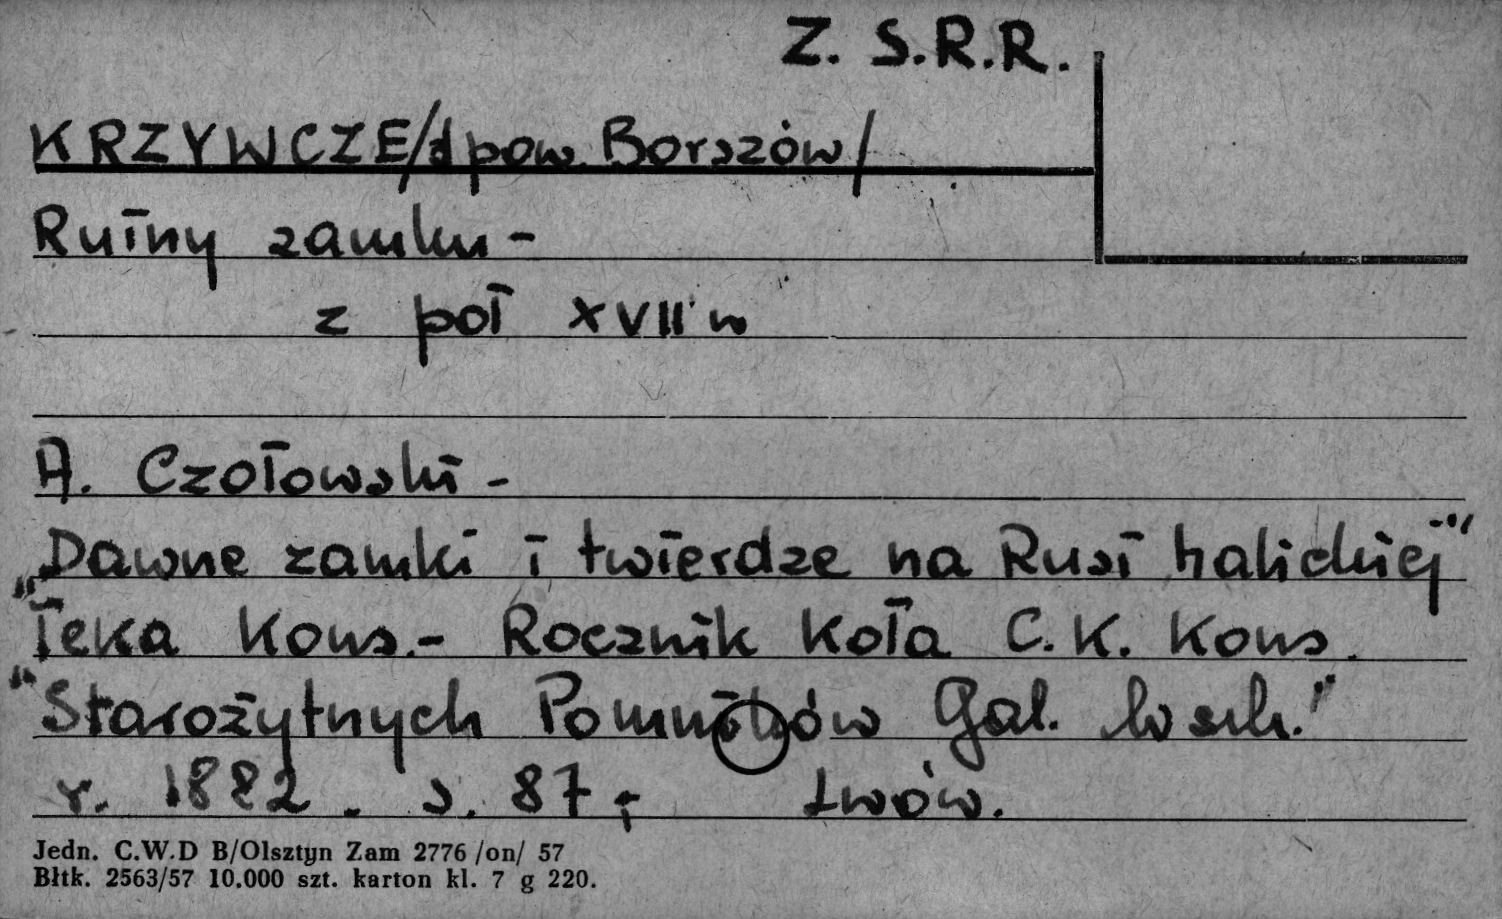 Z. S.R.R.
KRZYWCZE/d pow. Borszów/
Ruiny zamku -
z poł XVII w
A. Czołowski -
"Dawne zamki i twierdze na Rusi halickiej"
"Teka Kons.- Rocznik Koła C.K. Kons.
"Starożytnych Pomników Gal. Wsch."
r. 1882. s. 87,- Lwów.
Jedn. C.W.D B/Olsztyn Zam 2776 /on/ 57
Błtk. 2563/57 10.000 szt. karton kl. 7 g 220.